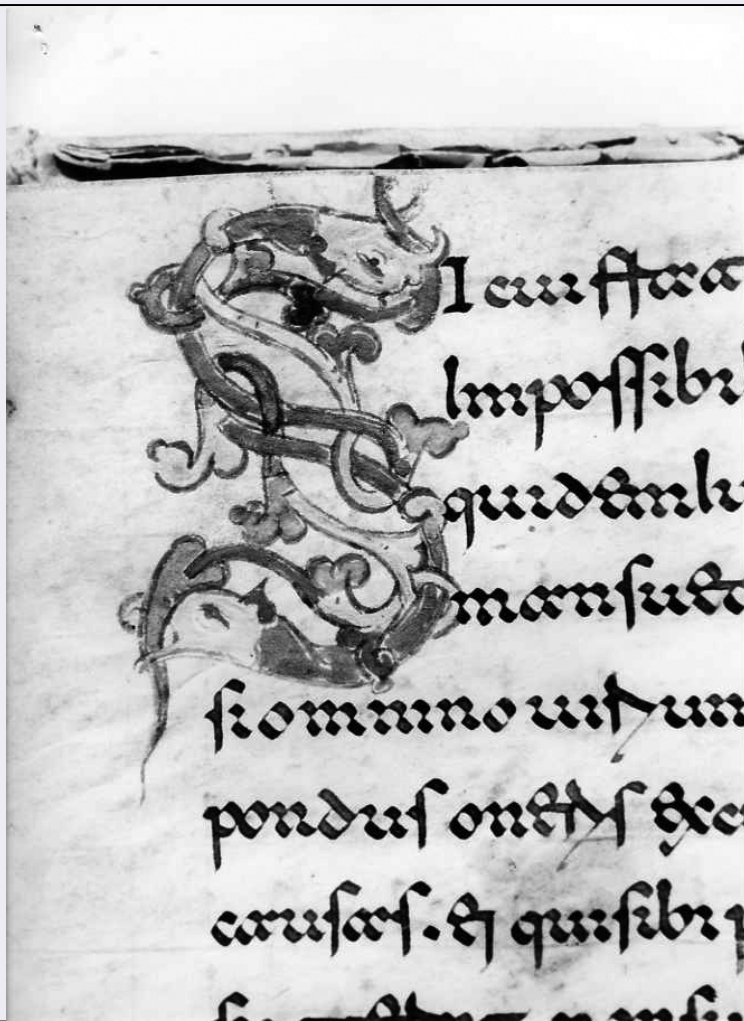 SI cui fra
Impossibi
quidem iu
mansuet
si omnino uirium
pondus oneris exce
causas. ei qui sibi p